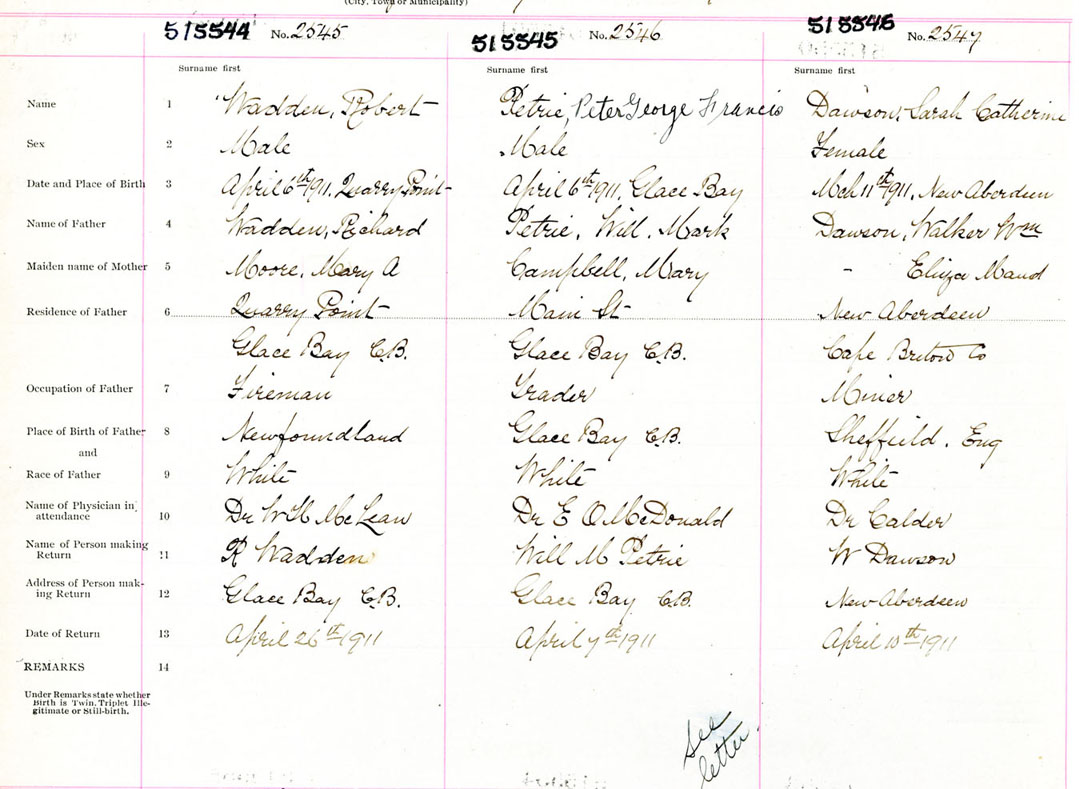 (City, Town or Municipality)
515544 No. 2545 515545 No. 2546 515546 No. 2547
Surname first Surname first Surname first
Name 1 Wadden, Robert Petrie, Peter George Francis Dawson, Sarah Catherine
Sex 2 Male Male Female
Date and Place of Birth 3 April 6th 1911, Quarry Point April 6th 1911, Glace Bay Mch 11th 1911, New Aberdeen
Name of Father 4 Wadden, Richard Petrie, Will. Mark Dawson, Walker Wm
Maiden name of Mother 5 Moore, Mary A Campbell, Mary - Eliza Maud
Residence of Father 6 Quarry Point Main St New Aberdeen
Glace Bay C.B. Glace Bay C.B. Cape Breton Co
Occupation of Father 7 Fireman Trader Miner
Place of Birth of Father 8 Newfoundland Glace Bay C.B. Sheffield. Eng
and
Race of Father 9 White White White
Name of Physician in attendance 10 Dr W H McLean Dr E O McDonald Dr Calder
Name of Person making Return 11 R Wadden Will M Petrie W Dawson
Address of Person mak-ing Return 12 Glace Bay C.B. Glace Bay C.B. New Aberdeen
Date of Return 13 April 26th 1911 April 7th 1911 April 10th 1911
REMARKS 14
Under Remarks state whether
Birth is Twin, Triplet Ille-
gitimate or Still-birth.
See
letter.